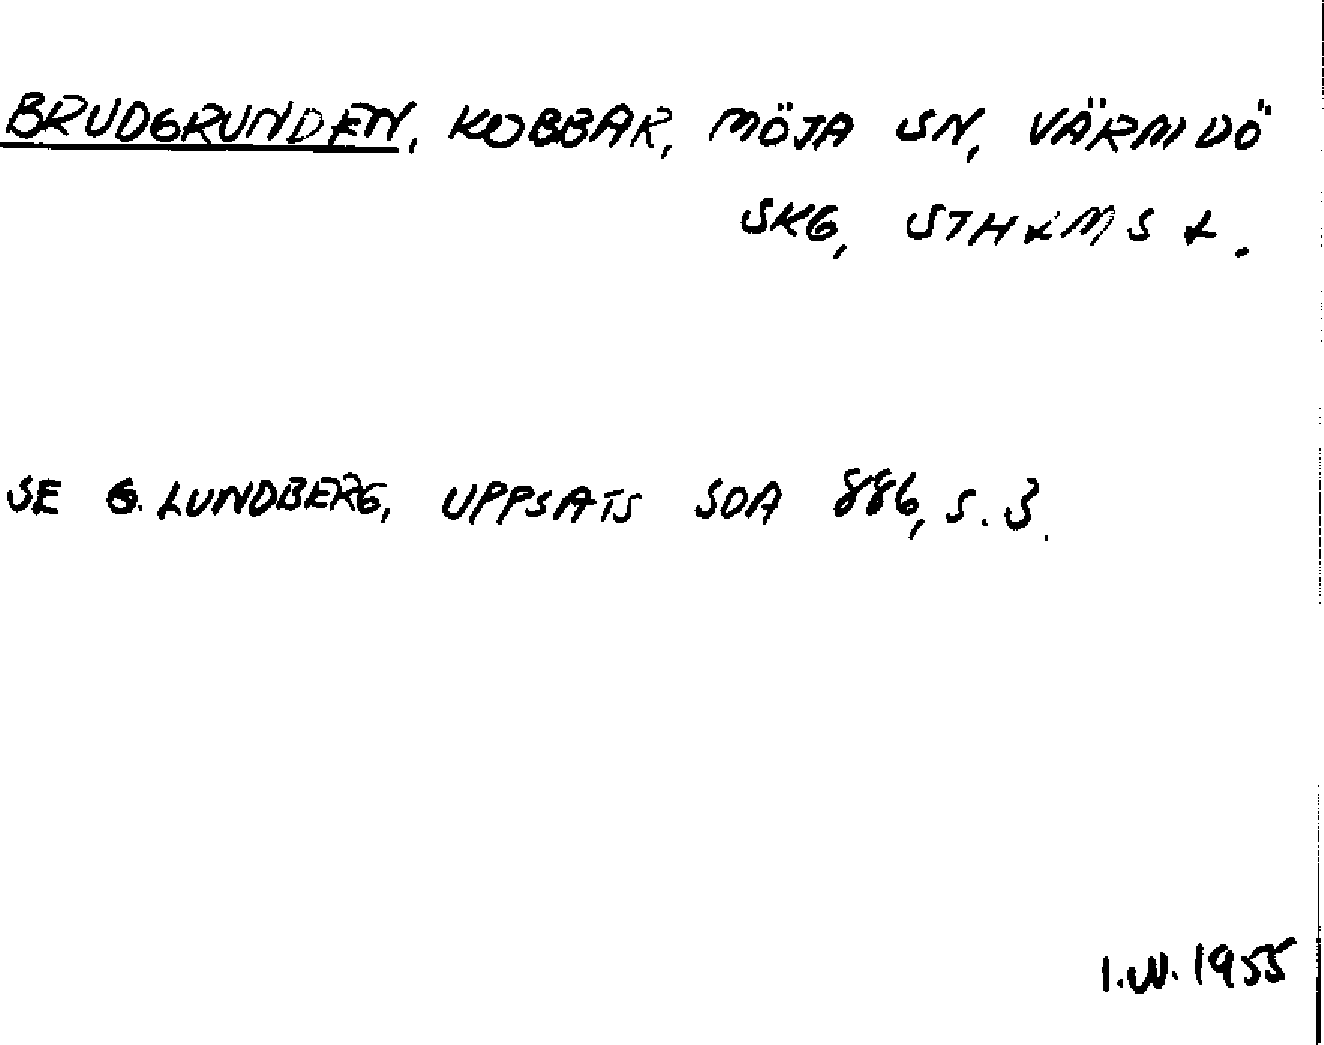 BRUDGRUNDEN, KOBBAR, MÖJA SN, VÄRMDÖ
SKG, STHLMS L.
SE G. LUNDBERG, UPPSATS SOA 886, S. 3.
I.W. 1955